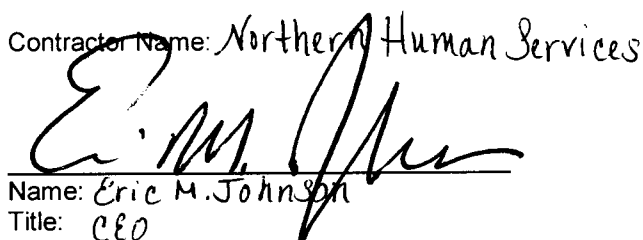 Contractor Name: Northern Human Services
E. M. Joh
Name: Eric M. Johnson
Title: CEO